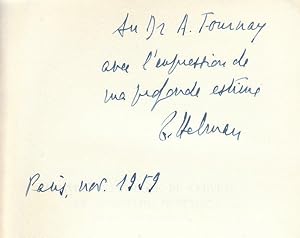 Au Dr A. Tournay
avec l'expression de
ma profonde estime
Paris, nov. 1959